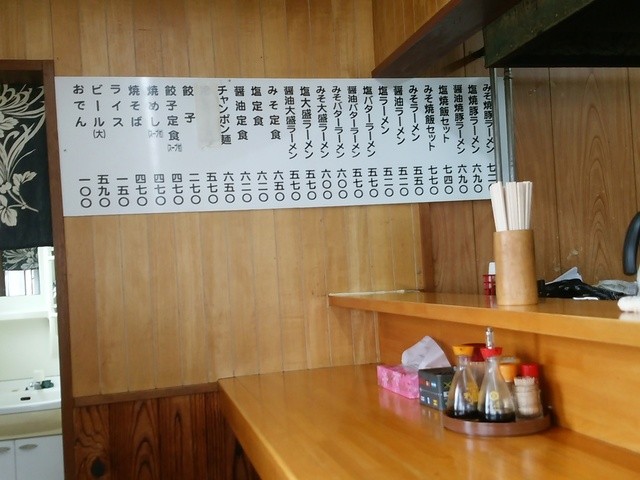 みそ焼豚ラーメン 七
塩焼豚ラーメン 六九〇
醤油焼豚ラーメン 六九〇
塩焼飯セット 七四〇
みそ焼飯セット 七七〇
みそラーメン 五五〇
醤油ラーメン 五二〇
塩ラーメン 五二〇
塩バターラーメン 五七〇
醤油バターラーメン 五七〇
みそバターラーメン 六〇〇
みそ大盛ラーメン 六〇〇
塩大盛ラーメン 五七〇
醤油大盛ラーメン 五七〇
みそ定食 六五〇
塩定食 六二〇
醤油定食 六二〇
チャンポン麺 六五〇
五七〇
餃子 二七〇
餃子定食(スープ付) 四七〇
焼めし(スープ付) 四七〇
焼そば 四七〇
ライス 一五〇
ビール(大) 五九〇
おでん 一〇〇